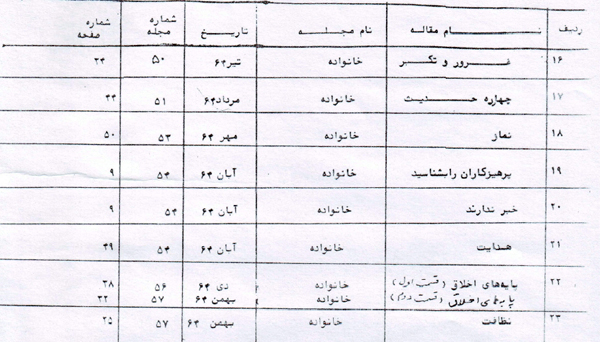 ردیف نام مقاله نام مجله تاریخ شماره مجله شماره صفحه
۱۶ غرور و تکبر خانواده تیر۶۴ ۵۰ ۲۴
۱۷ چهاره حدیث خانواده مرداد۶۴ ۵۱ ۴۴
۱۸ نماز خانواده مهر ۶۴ ۵۳ ۵۰
۱۹ پرهیزکاران رابشناسید خانواده آبان ۶۴ ۵۴ ۹
۲۰ خبر ندارند خانواده آبان ۶۴ ۵۴ ۹
۲۱ هدایت خانواده آبان ۶۴ ۵۴ ۴۹
۲۲ پایه‌های اخلاق (قسمت اول) خانواده دی ۶۴ ۵۶ ۳۸
پایه‌های اخلاق (قسمت دوم) خانواده بهمن ۶۴ ۵۷ ۳۲
۲۳ نظافت خانواده بهمن ۶۴ ۵۷ ۲۵